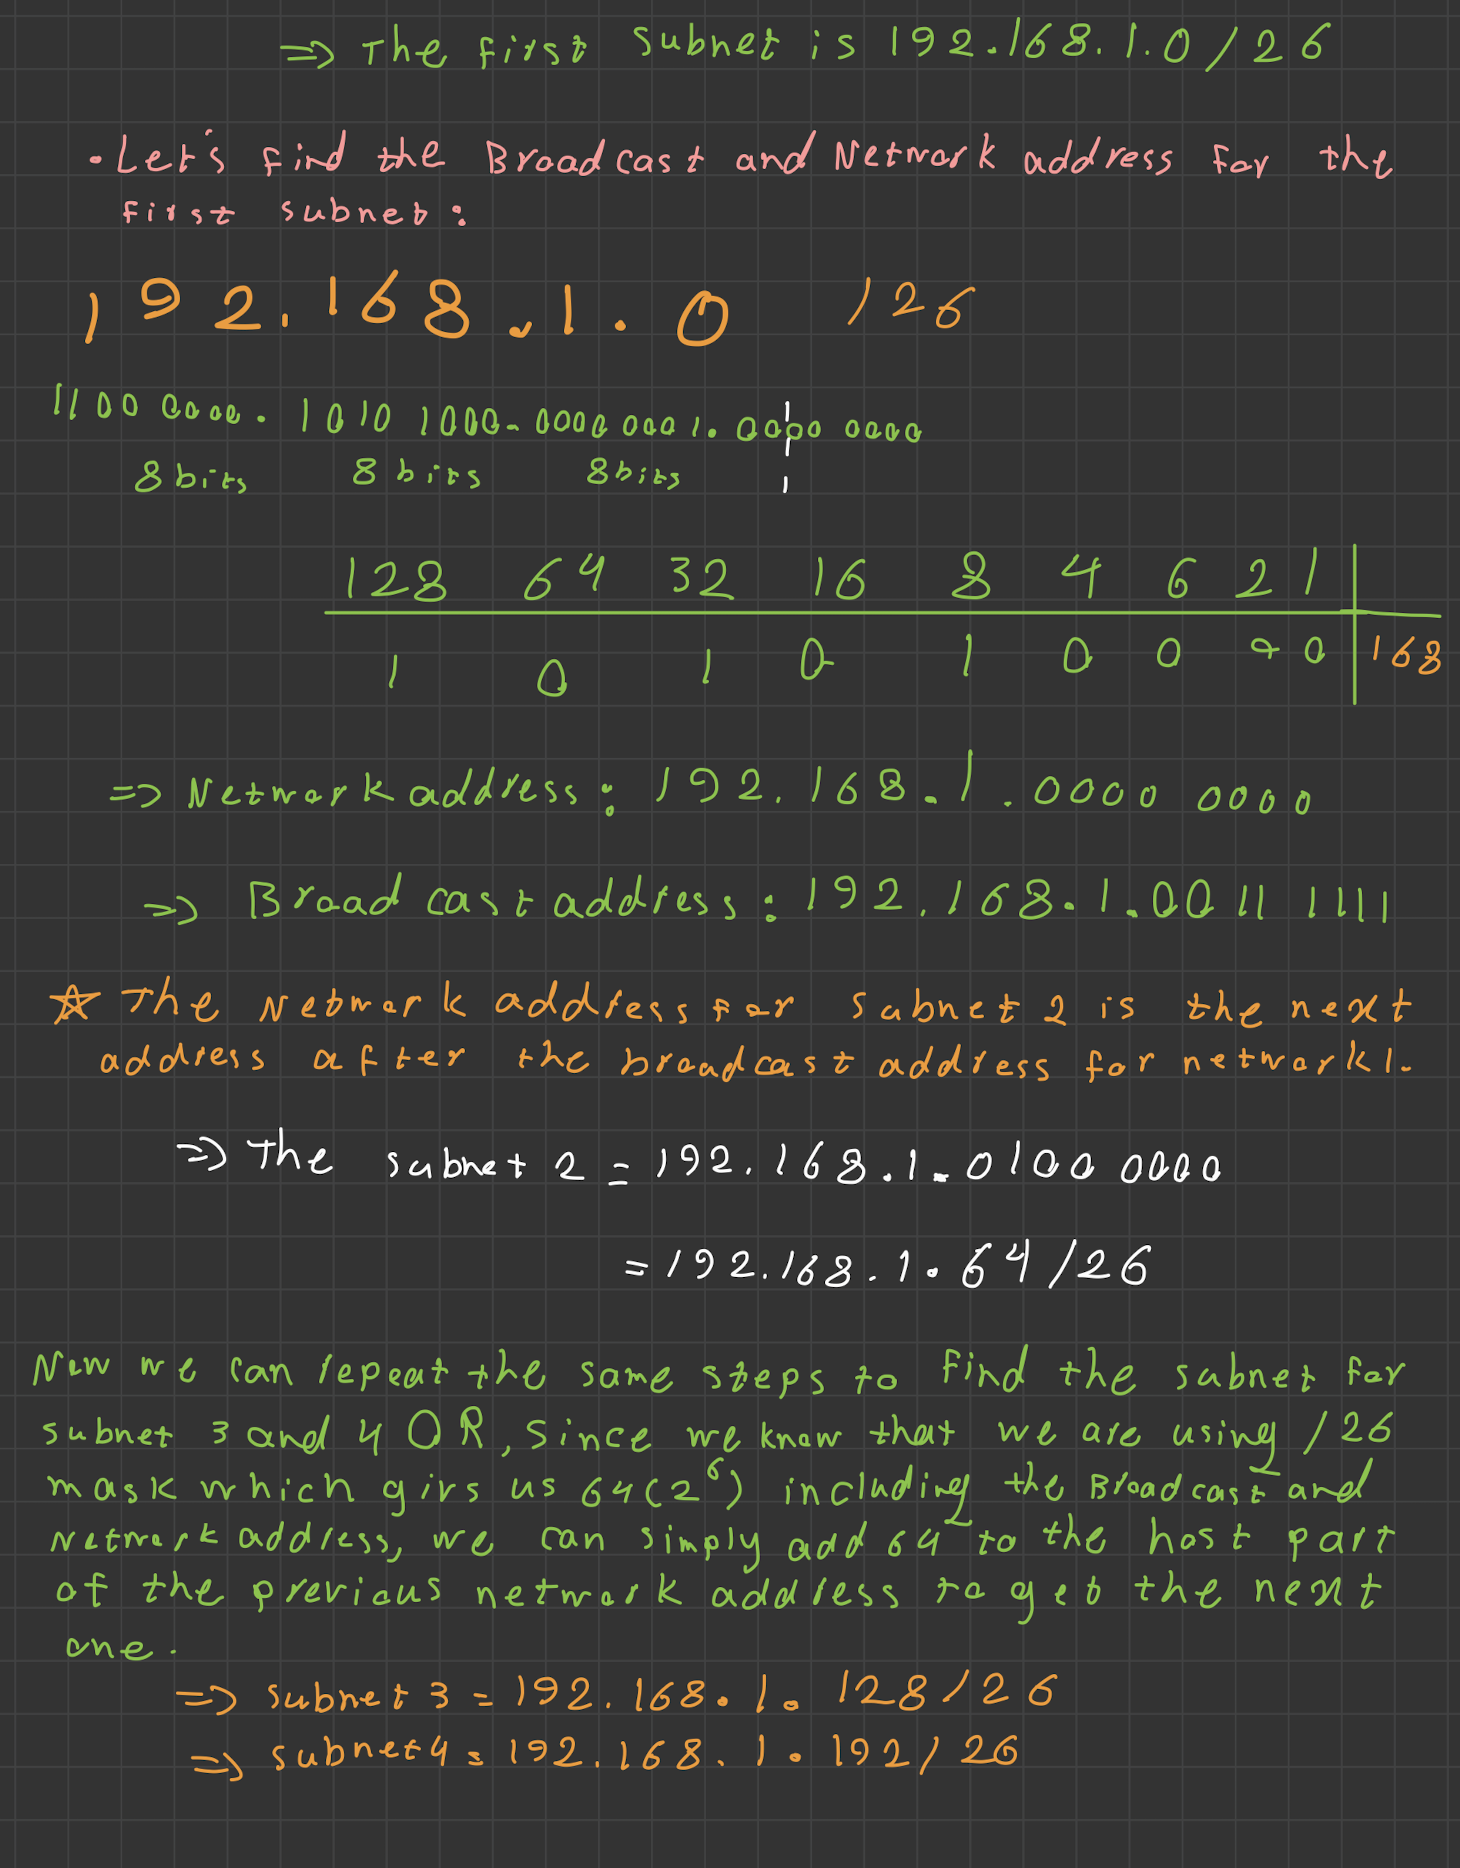 => The first subnet is 192.168.1.0/26
• Let's find the Broadcast and Network address for the
first subnet:
192.168.1.0 /26
1100 0000. 1010 1000. 0000 0001. 0000 0000
8 bits 8 bits 8 bits
128 64 32 16 8 4 6 2 1
1 0 1 0 1 0 0 0 0 168
=> Network address: 192.168.1.0000 0000
=> Broadcast address: 192.168.1.0011 1111
☆ The Network address for subnet 2 is the next
address after the broadcast address for network 1.
=> The subnet 2 = 192.168.1.0100 0000
= 192.168.1.64/26
Now we can repeat the same steps to find the subnet for
subnet 3 and 4 OR, Since we know that we are using /26
mask which givs us 64(2⁶) including the Broadcast and
Network address, we can simply add 64 to the host part
of the previous network address to get the next
one.
=> subnet 3 = 192.168.1.128/26
=> subnet 4 = 192.168.1.192/26